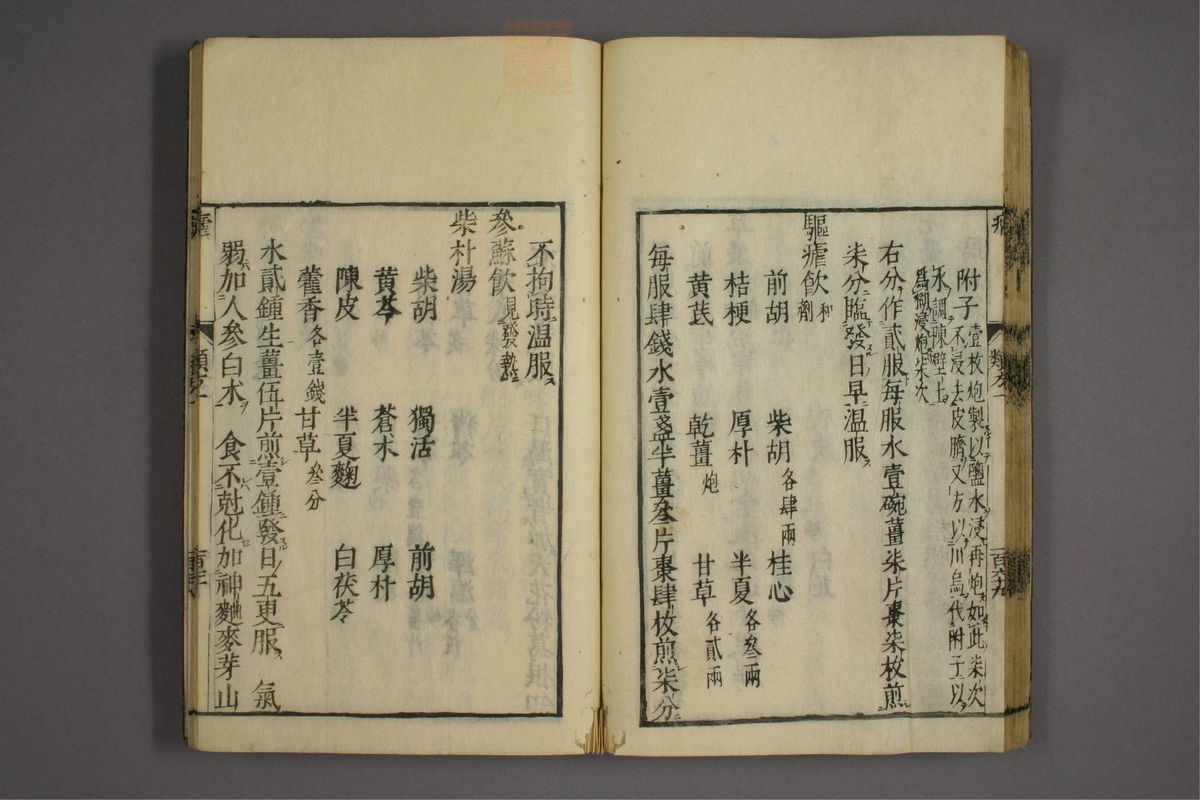 附子壹枚炮製以鹽水浸再炮如此柒次
不浸去皮臍又方以川烏代附子以
水調陳壁土
爲糊浸炮柒次
右分作貳服每服水壹碗薑柒片棗柒枚煎
柒分臨發日早温服
驅瘧飲和劑
前胡 柴胡各肆兩 桂心
桔梗 厚朴 半夏各叁兩
黄茋 乾薑炮 甘草各貳兩
每服肆錢水壹盞半薑叁片棗肆枚煎柒分
不拘時温服
參蘇飲見發熱
柴朴湯
柴胡 獨活 前胡
黄芩 蒼朮 厚朴
陳皮 半夏麴 白茯苓
藿香各壹錢 甘草叁分
水貳鍾生薑伍片煎壹鍾發日五更服 氣
弱加人參白朮 食不尅化加神麯麥芽山
瘧 類之一